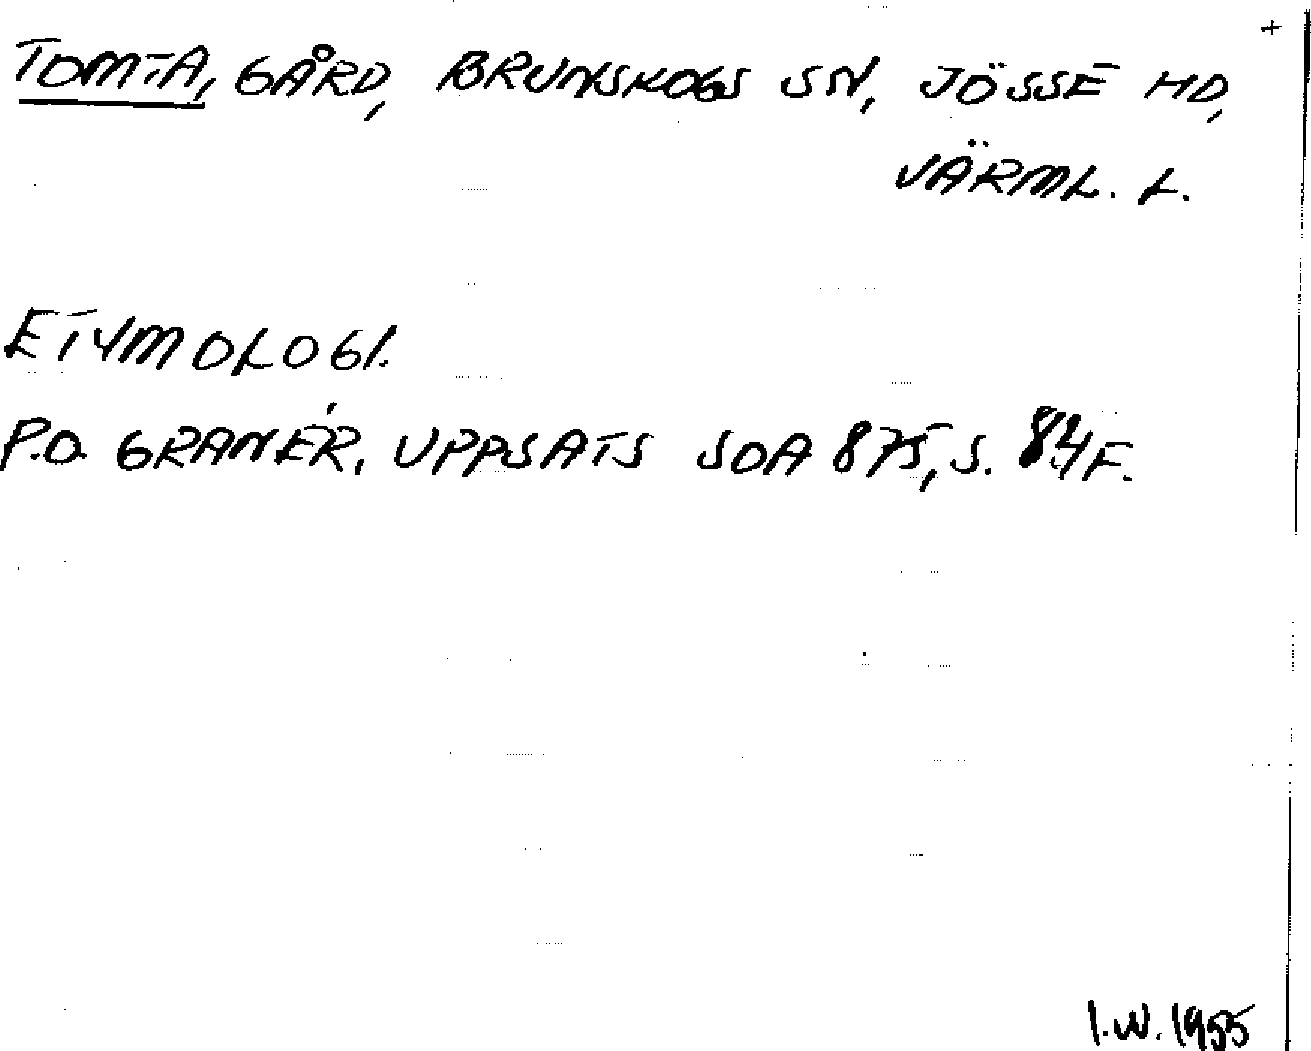 +
TOMTA, GÅRD, BRUNSKOGS SN, JÖSSE HD,
VÄRML. L.
ETYMOLOGI.
P.O. GRANÉR, UPPSATS SOA 875, S. 84 F.
I.W. 1955